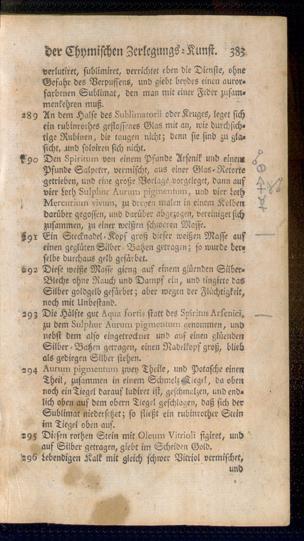 der Chymischen Zerlegungs-Kunst. 383
verlutiret, sublimiret, verrichtet eben die Dienste, ohne
Gefahr des Verpuffens, und giebt beydes einen auror-
farbenen Sublimat, den man mit einer Feder zusam-
menkehren muß.
289 An dem Halse des Sublimatorii oder Kruges, leget sich
ein rubinrothes geflossenes Glas mit an, wie durchsich-
tige Rubinen, die taugen nicht; denn sie sind zu gla-
sicht, und solviren sich nicht.
290 Den Spiritum von einem Pfunde Arsenik und einem
Pfunde Salpeter, vermischt, aus einer Glas-Retorte
getrieben, und eine große Vorlage vorgeleget, dann auf
vier loth Sulphur Aurum pigmentum, und vier loth
Mercurium vivum, zu dreyen malen in einem Kolben
darüber gegossen, und darüber abgezogen, vereiniget sich
zusammen, zu einer weißen schweren Masse.
291 Ein Stecknadel-Kopf groß dieser weißen Masse auf
einen geglüten Silber-Batzen getragen; so wurde der-
selbe durchaus gelb gefärbet.
292 Diese weiße Masse gieng auf einem glüenden Silber-
Bleche ohne Rauch und Dampf ein, und tingirte das
Silber goldgelb gefärbet; aber wegen der Flüchtigkeit,
noch mit Unbestand.
293 Die Hälfte gut Aqua fortis statt des Spiritus Arsenici,
zu dem Sulphur Aurum pigmentum genommen, und
nebst dem also eingetrocknet und auf einen glüenden
Silber-Batzen getragen, einen Nadelkopf groß, blieb
als gediegen Silber stehen.
294 Aurum pigmentum zwey Theile, und Potasche einen
Theil, zusammen in einem Schmelz-Tiegel, da oben
noch ein Tiegel darauf lutiret ist, geschmolzen, und end-
lich oben auf dem obern Tiegel geschlagen, daß sich der
Sublimat niedersetzet; so fließt ein rubinrother Stein
im Tiegel oben auf.
295 Diesen rothen Stein mit Oleum Vitrioli figiret, und
auf Silber getragen, giebt im Scheiden Gold.
296 Lebendigen Kalk mit gleich schwer Vitriol vermischet,
und